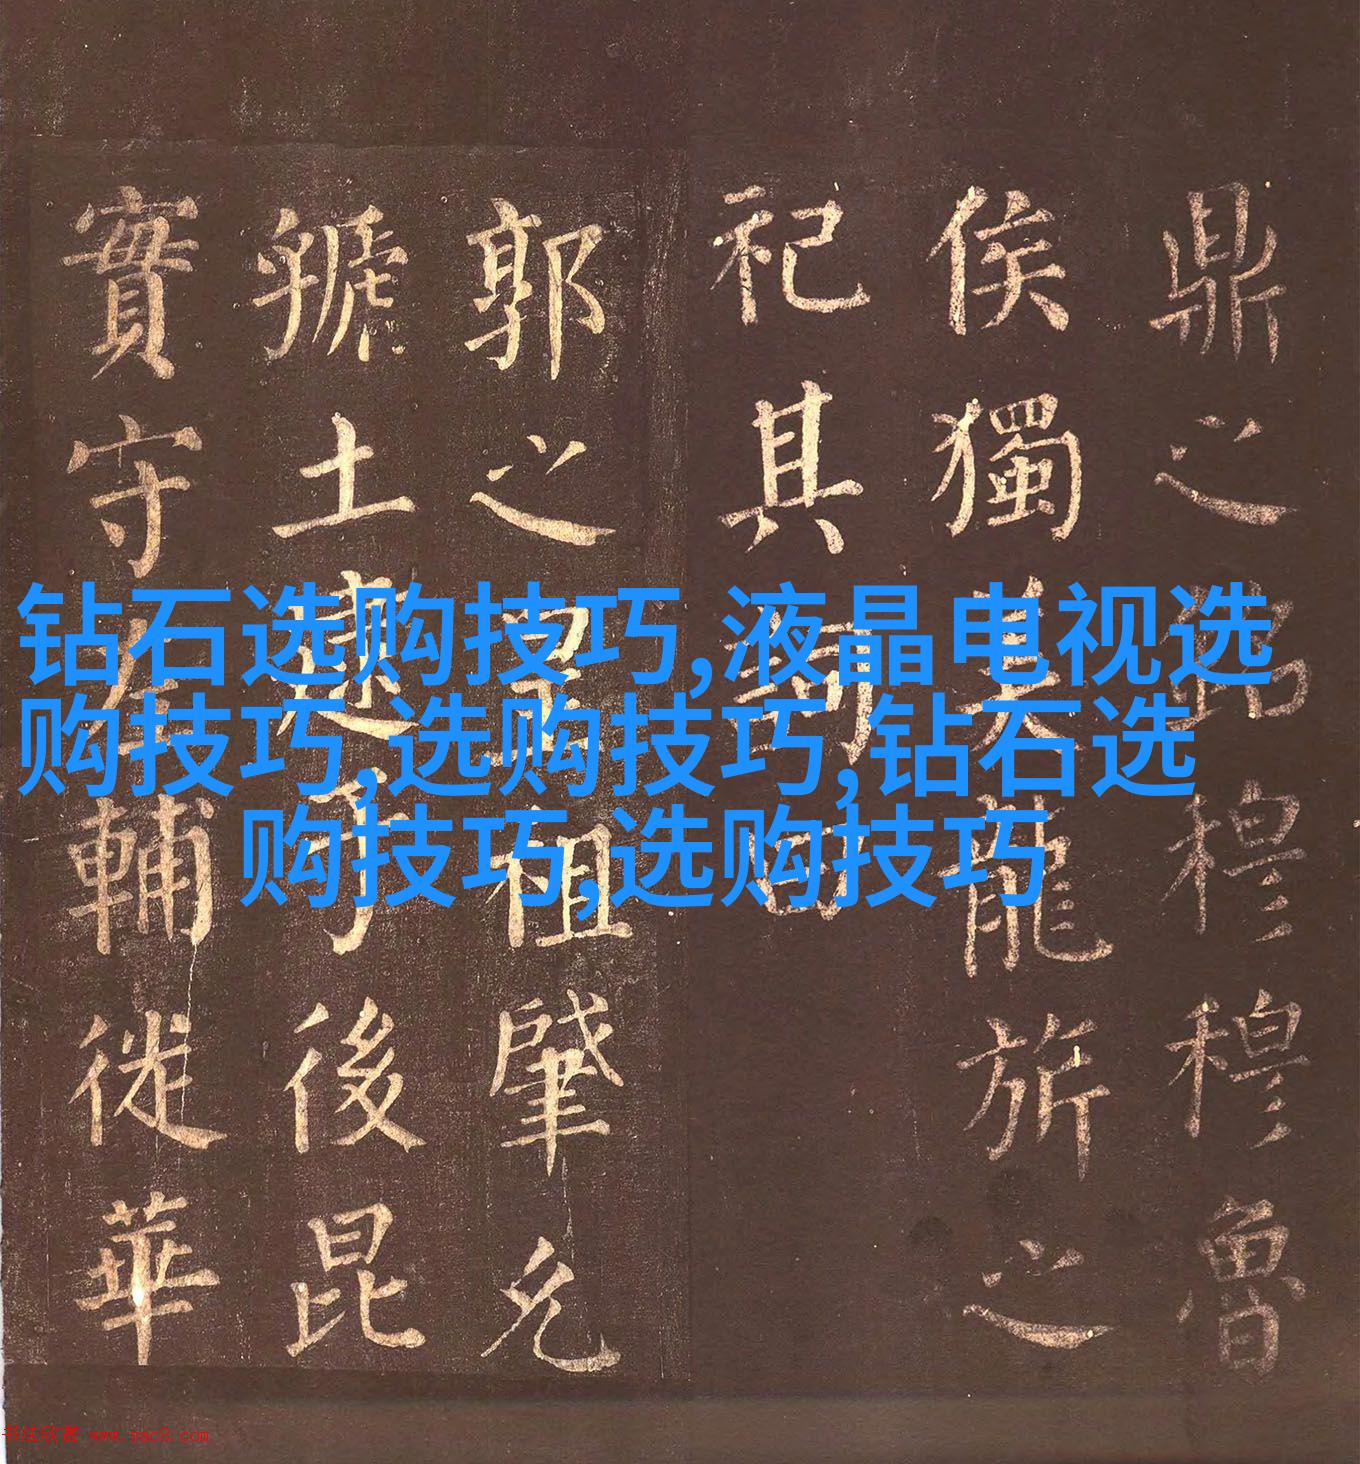 鼎之穆穆魯
侯獨美龍旂之
祀其詞曰
郭之皇祖肇允
虢土逮于後昆
實守左輔徙華
钻石选购技巧,液晶电视选
购技巧,选购技巧,钻石选
购技巧,选购技巧
书法欣赏 www.yac8.com